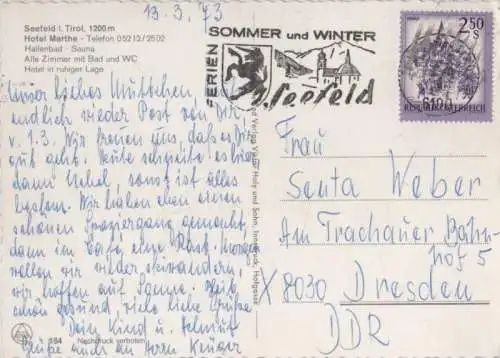 13.3.73
Seefeld i. Tirol, 1200 m
Hotel Marthe - Telefon 05212/2502
Hallenbad - Sauna
Alle Zimmer mit Bad und WC
Hotel in ruhiger Lage
FERIEN
SOMMER und WINTER
Seefeld
2.50
S
REPUBLIK ÖSTERREICH
6100
Unser liebes Muttchen,
endlich wieder Post von Dir
v. 1.3. Wir freuen uns, daß es Dir
gut geht. Heute schneite es hier
dann Nebel, sonst ist alles
bestens. Wir haben einen
schönen Spaziergang gemacht
dann im Café eine Rast. Morgen
wollen wir wieder skiwandern,
wir hoffen auf Sonne. Bleib
schön gesund, viele liebe Grüße
Dein Kind u. Helmut
Grüße auch an Herrn Krüger
184 Nachdruck verboten
Verlag Hully und Sohn, Innsbruck, Hofgasse
Frau
Senta Weber
Am Trachauer Bahn-
hof 5
X 8030 Dresden
DDR